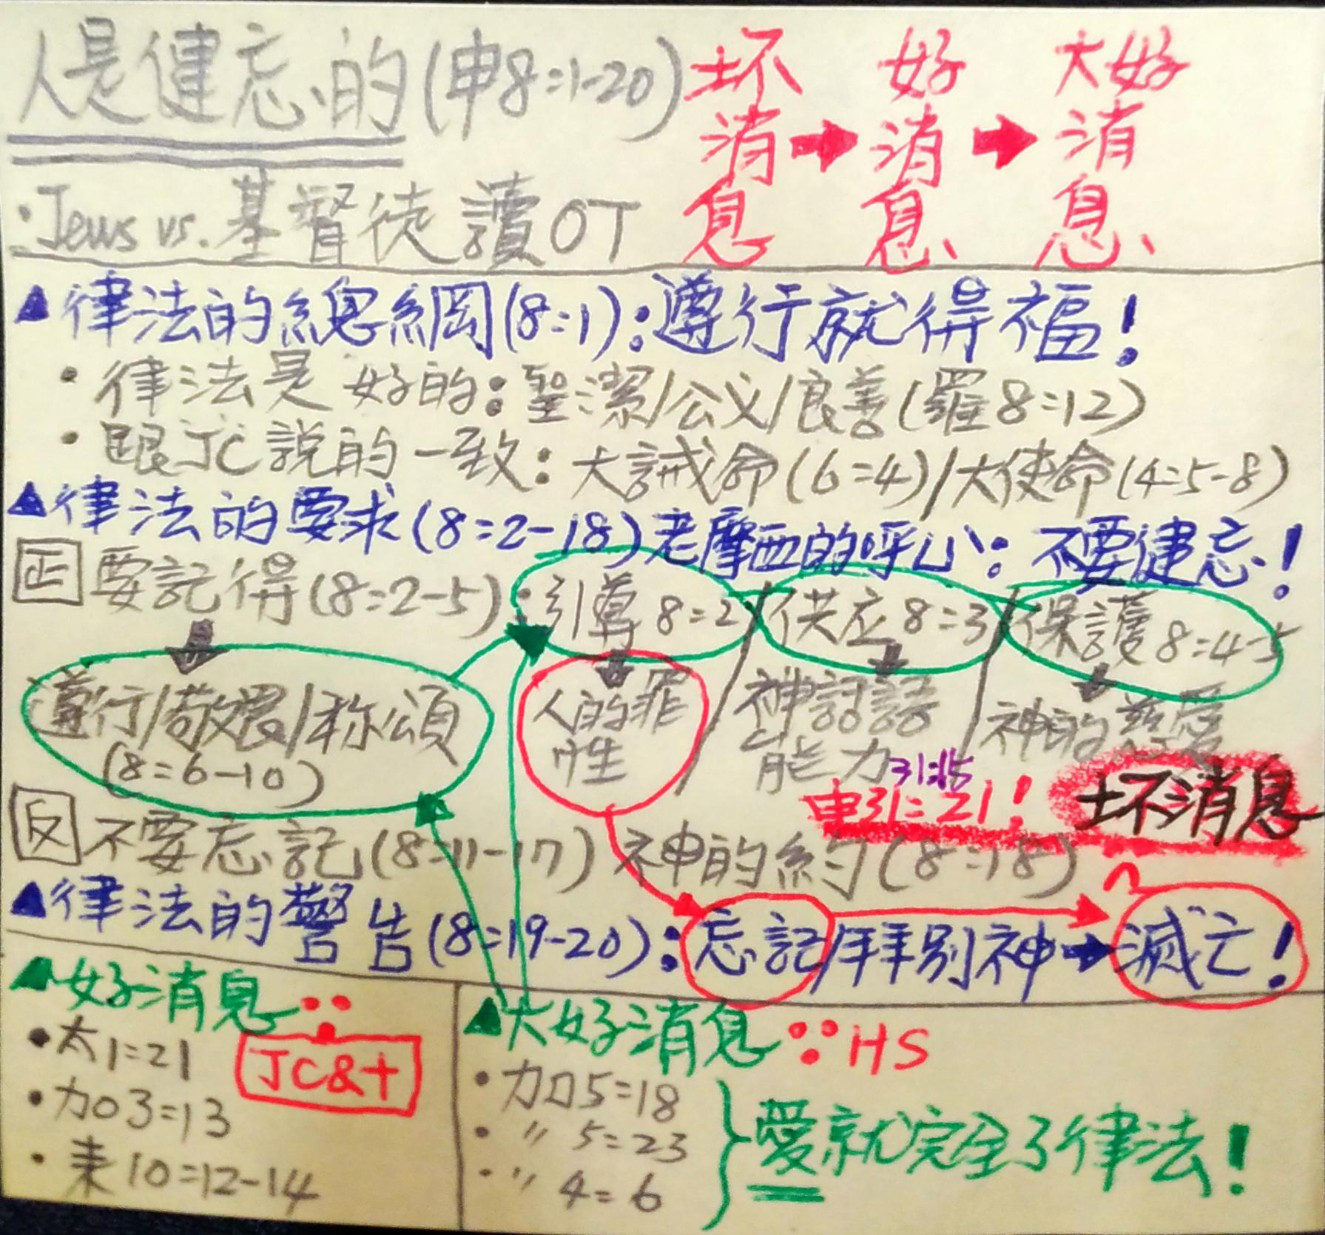 人是健忘的(申8:1-20)
坏消息➡好消息➡大好消息
·Jews vs.基督徒讀OT
▲律法的總綱(8:1):遵行就得福!
·律法是好的:聖潔/公义/良善(羅8:12)
·跟JC說的一致:大誡命(6:4)/大使命(4:5-8)
▲律法的要求(8:2-18)老摩西的呼心:不要健忘!
正 要記得(8:2-5):引導8:2/供应8:3/保護8:4-5
遵行/敬畏/称頌
(8:6-10)
人的罪性
神話語能力
神的慈爱
31:15
申31:21!
坏消息
反 不要忘記(8:11-17)神的約(8:18)
▲律法的警告(8:19-20):忘記/拜别神➡滅亡!
▲好消息∵
JC&十
·太1:21
·加3:13
·来10:12-14
▲大好消息∵HS
·加5:18
·〃5:23
·〃4:6
愛就完全了律法!